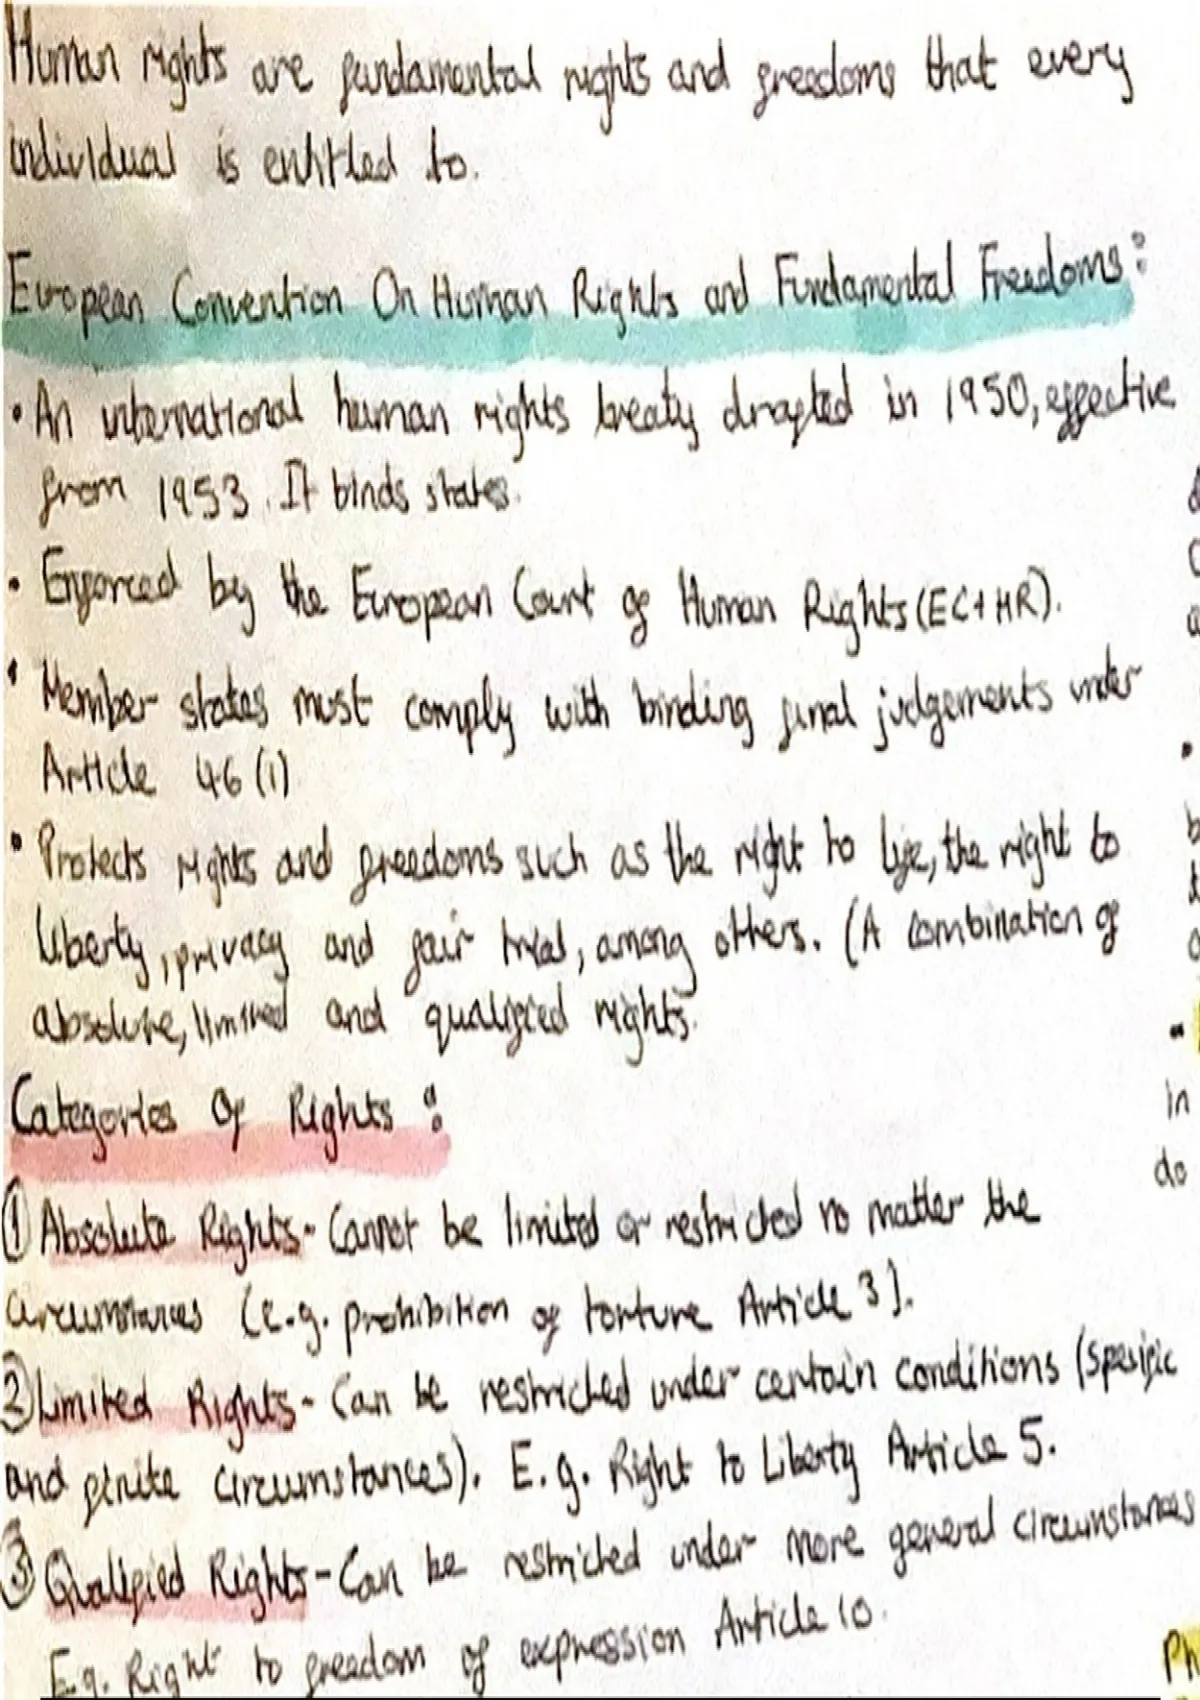 Human rights are fundamental rights and freedoms that every
individual is entitled to.
European Convention On Human Rights and Fundamental Freedoms:
• An international human rights treaty drafted in 1950, effective
from 1953. It binds states.
• Enforced by the European Court of Human Rights (ECtHR).
• Member states must comply with binding final judgements under
Article 46 (1)
• Protects rights and freedoms such as the right to life, the right to
liberty, privacy and fair trial, among others. (A combination of
absolute, limited and qualified rights.
Categories Of Rights :
① Absolute Rights - Cannot be limited or restricted no matter the
circumstances (e.g. prohibition of torture Article 3).
② Limited Rights - Can be restricted under certain conditions (specific
and finite circumstances). E.g. Right to Liberty Article 5.
③ Qualified Rights - Can be restricted under more general circumstances
Eg. Right to freedom of expression Article 10.
in
do
Ph